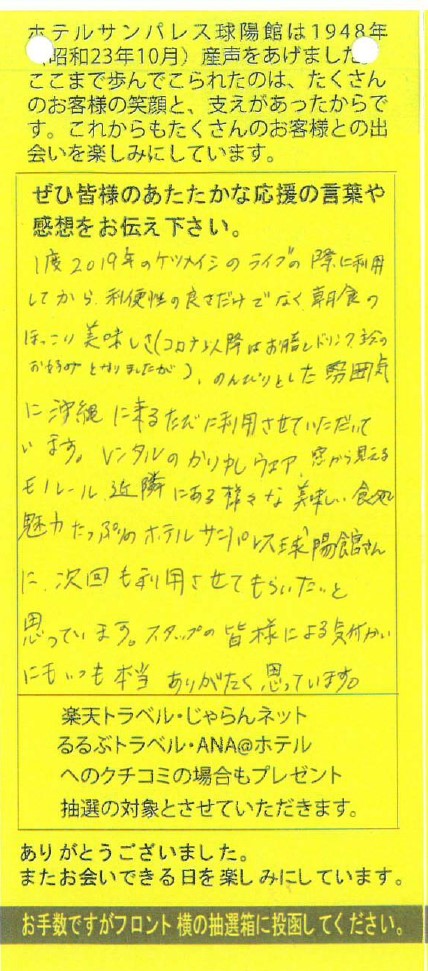 ホテルサンパレス球陽館は1948年
(昭和23年10月)産声をあげました。
ここまで歩んでこられたのは、たくさん
のお客様の笑顔と、支えがあったからで
す。これからもたくさんのお客様との出
会いを楽しみにしています。
ぜひ皆様のあたたかな応援の言葉や
感想をお伝え下さい。
1度2019年のケツメイシのライブの際に利用
してから、利便性の良さだけでなく朝食の
ほっこり美味しさ(コロナ以降はお膳とドリンク
お好みとなりましたが)、のんびりとした雰囲気
に沖縄に来るたびに利用させていただいて
います。レンタルのかりゆしウェア、窓から見える
モノレール、近隣にある様々な美味しい食処
魅力たっぷりのホテルサンパレス球陽館さん
に、次回も利用させてもらいたいと
思っています。スタッフの皆様による気付かい
にもいつも本当ありがたく思っています。
楽天トラベル・じゃらんネット
るるぶトラベル・ANA@ホテル
へのクチコミの場合もプレゼント
抽選の対象とさせていただきます。
ありがとうございました。
またお会いできる日を楽しみにしています。
お手数ですがフロント横の抽選箱に投函してください。